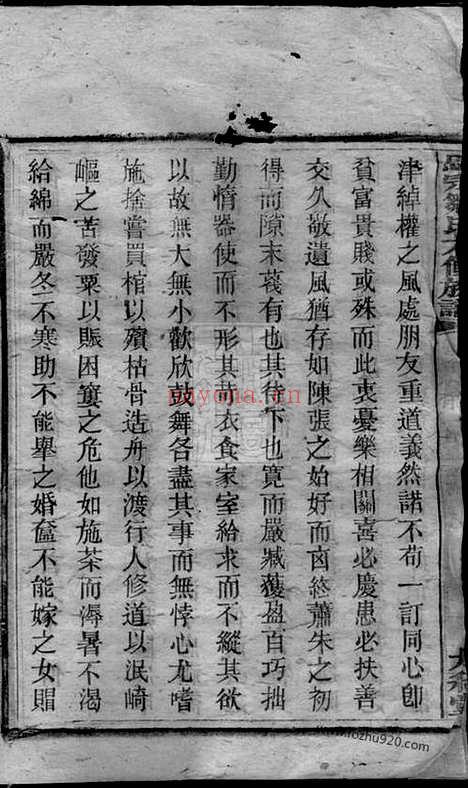 津綽權之風處朋友重道義然諾不苟一訂同心即
貧富貴賤或殊而此衷憂樂相關喜必慶患必扶善
交久敬遺風猶存如陳張之始好而凶終蕭朱之初
得而隙末蔑有也其待下也寬而嚴臧獲盈百巧拙
勤惰器使而不形其苛衣食家室給求而不縱其欲
以故無大無小歡欣鼓舞各盡其事而無悖心尤嗜
施捨嘗買棺以殯枯骨造舟以渡行人修道以泯崎
嶇之苦發粟以賑困窶之危他如施茶而溽暑不渴
給綿而嚴冬不寒助不能舉之婚奩不能嫁之女賵
nayona.cn
www.fozhu920.com